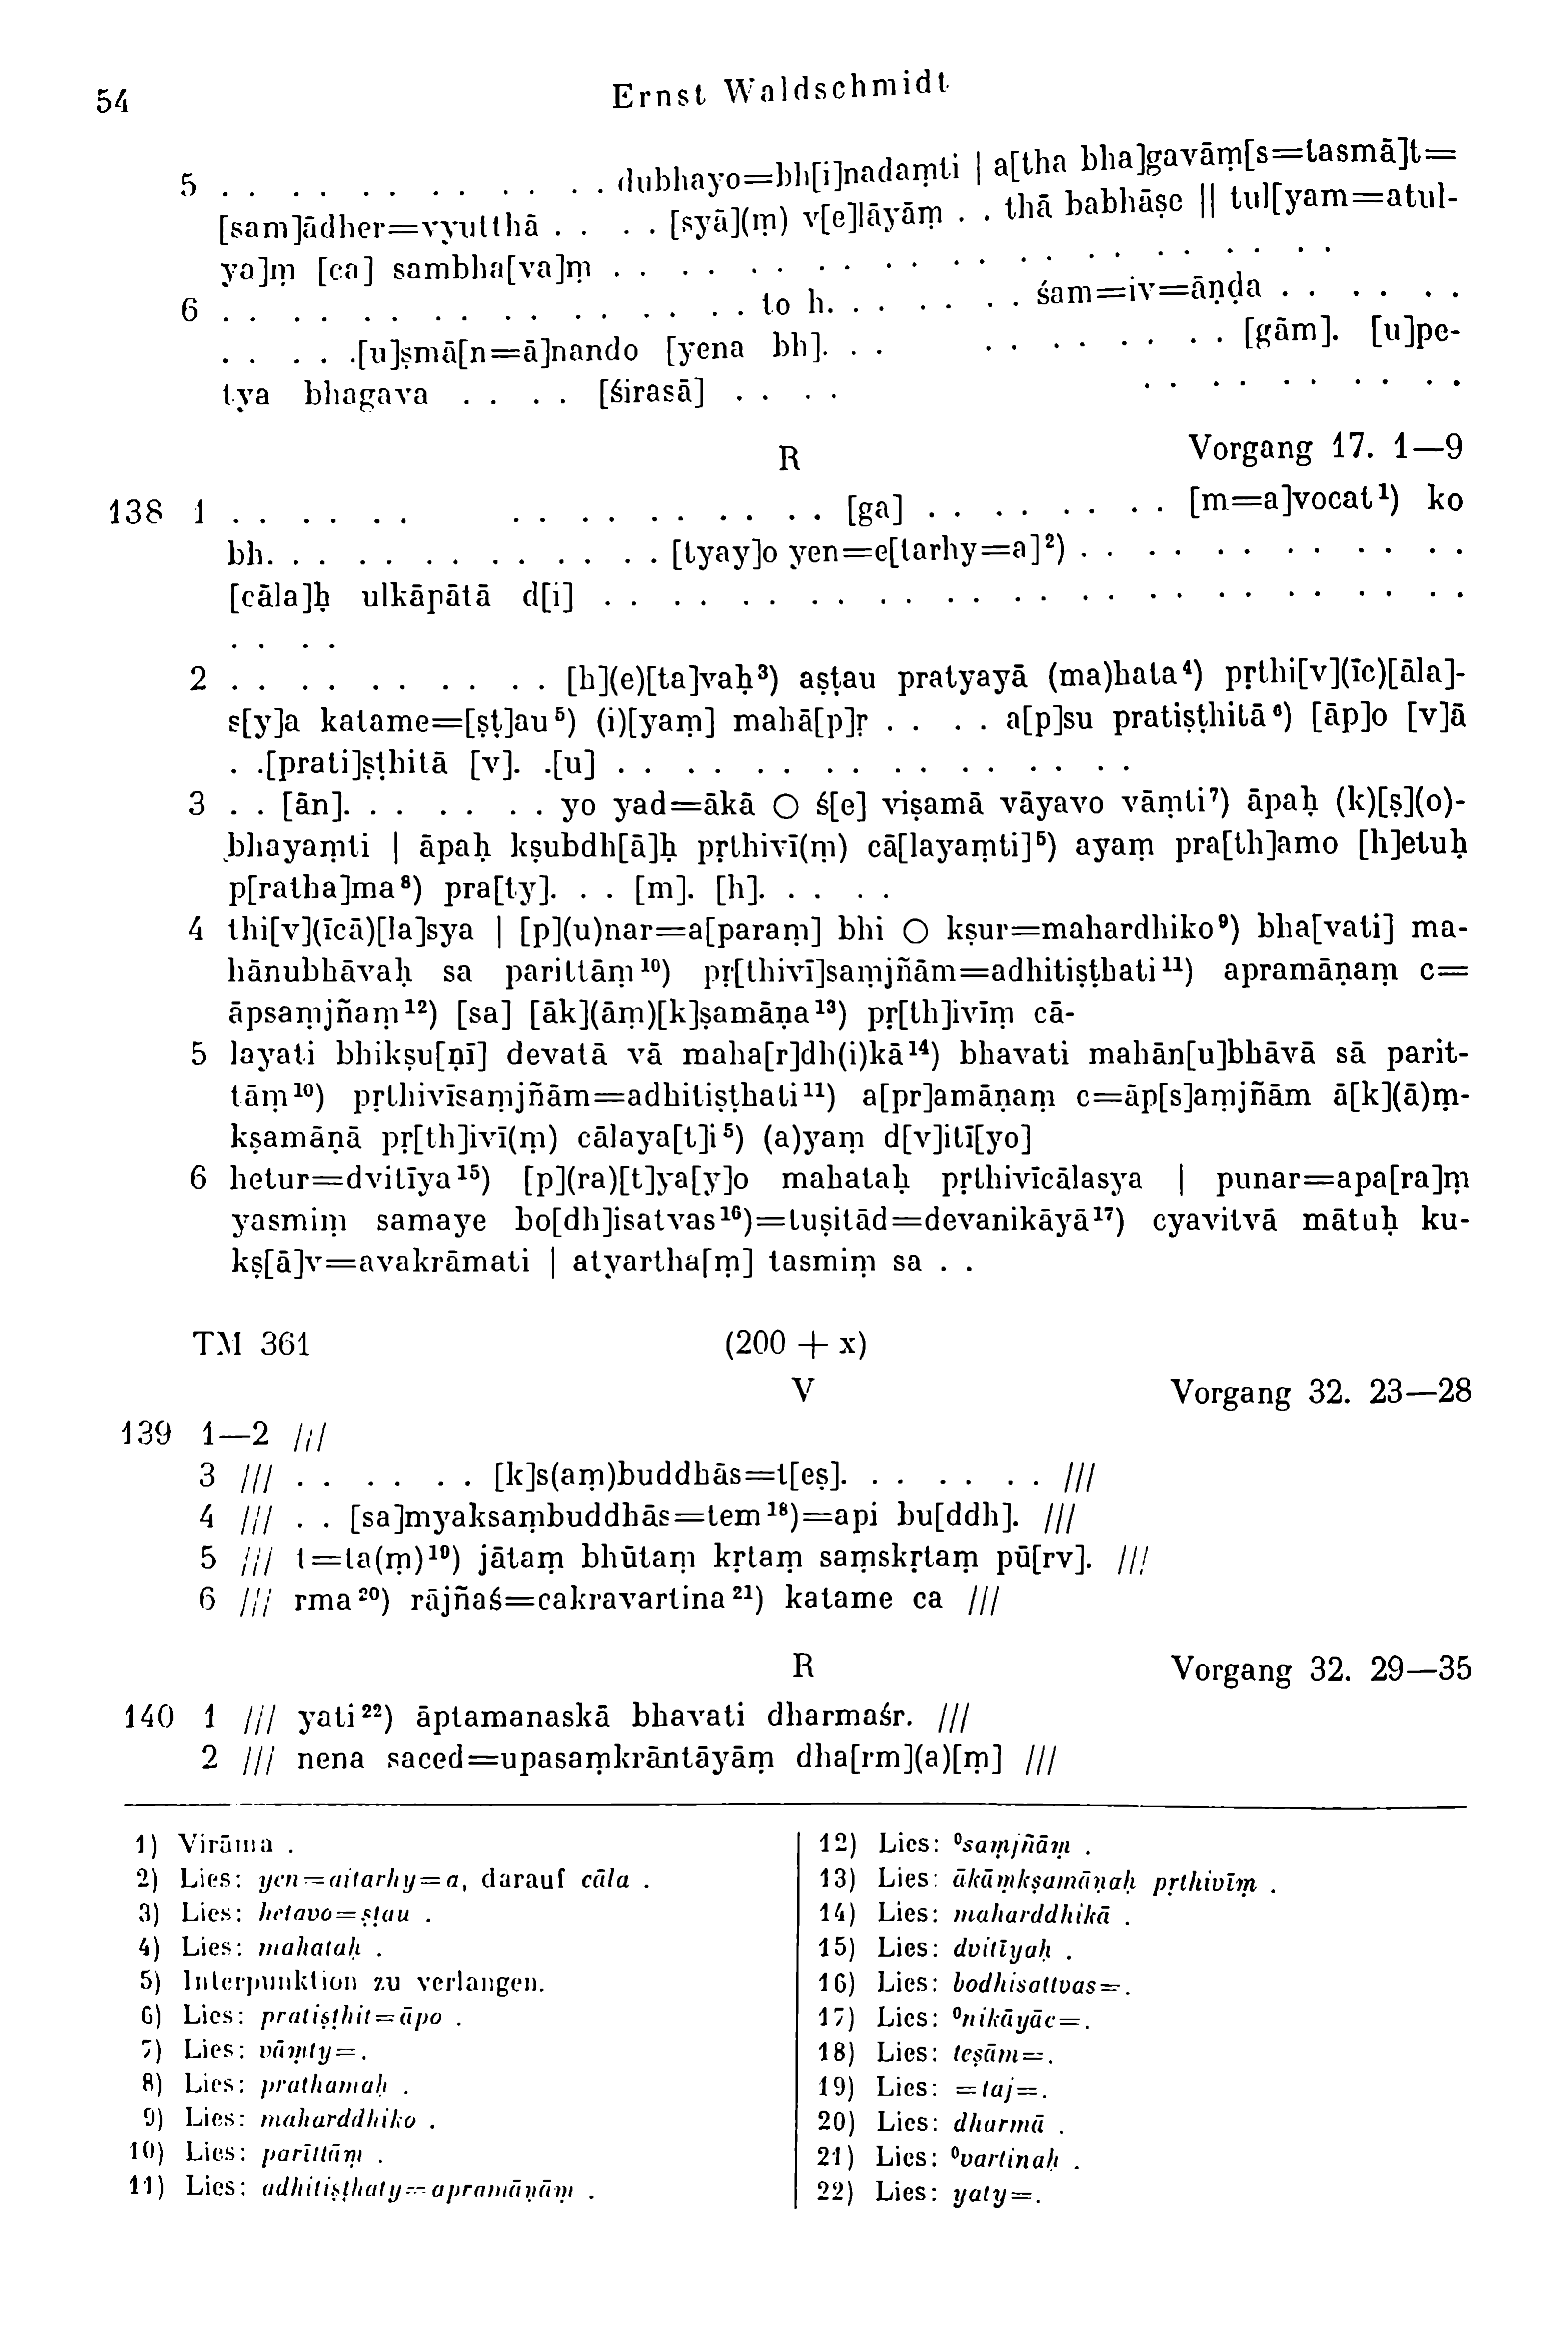 54 Ernst Waldschmidt
5 . . . . . . . . . . . . . . dubhayo=bh[i]nadaṃti | a[tha bha]gavāṃ[s=tasmā]t=
[sam]ādher=vyutthā . . . . [syā](ṃ) v[e]lāyāṃ . . thā babhāṣe || tul[yam=atul-
ya]ṃ [ca] sambha[va]ṃ . . . . . . . . . . . . . . . . . . . . . .
6 . . . . . . . . . . . . . . . . . . . to h. . . . . . . śam=iv=āṇḍa . . . . . .
. . . . .[u]ṣmā[n=ā]nando [yena bh]. . . . . . . . . . . [gām]. [u]pe-
tya bhagava . . . . [śirasā] . . . . . . . . . . . . . .
R Vorgang 17. 1—9
138 1 . . . . . . . . . . . . . . . . [ga] . . . . . . . . [m=a]vocat¹) ko
bh. . . . . . . . . . . . . [tyay]o yen=e[tarhy=a]²) . . . . . . . . . . . .
[cāla]ḥ ulkāpātā d[i] . . . . . . . . . . . . . . . . . . . . . . . . . .
. . . .
2 . . . . . . . . . . . . [h](e)[ta]vaḥ³) aṣṭau pratyayā (ma)hata⁴) pṛthi[v](īc)[āla]-
s[y]a katame=[ṣṭ]au⁵) (i)[yaṃ] mahā[p]ṛ . . . . a[p]su pratiṣṭhitā⁶) [āp]o [v]ā
. .[prati]ṣṭhitā [v]. .[u] . . . . . . . . . . . . . . . . . . .
3 . . [ān]. . . . . . . . yo yad=ākā ○ ś[e] viṣamā vāyavo vāṃti⁷) āpaḥ (k)[ṣ](o)-
bhayaṃti | āpaḥ kṣubdh[ā]ḥ pṛthivī(ṃ) cā[layaṃti]⁵) ayaṃ pra[th]amo [h]etuḥ
p[ratha]ma⁸) pra[ty]. . . [m]. [h]. . . . .
4 thi[v](īcā)[la]sya | [p](u)nar=a[paraṃ] bhi ○ kṣur=mahardhiko⁹) bha[vati] ma-
hānubhāvaḥ sa parittāṃ¹⁰) pṛ[thivī]saṃjñām=adhitiṣṭhati¹¹) apramāṇaṃ c=
āpsaṃjñaṃ¹²) [sa] [āk](āṃ)[k]ṣamāṇa¹³) pṛ[th]ivīṃ cā-
5 layati bhikṣu[ṇī] devatā vā maha[r]dh(i)kā¹⁴) bhavati mahān[u]bhāvā sā parit-
tāṃ¹⁰) pṛthivīsaṃjñām=adhitiṣṭhati¹¹) a[pr]amāṇaṃ c=āp[s]aṃjñām ā[k](ā)ṃ-
kṣamāṇā pṛ[th]ivī(ṃ) cālaya[t]i⁵) (a)yaṃ d[v]itī[yo]
6 hetur=dvitīya¹⁵) [p](ra)[t]ya[y]o mahataḥ pṛthivīcālasya | punar=apa[ra]ṃ
yasmiṃ samaye bo[dh]isatvas¹⁶)=tuṣitād=devanikāyā¹⁷) cyavitvā mātuḥ ku-
kṣ[ā]v=avakrāmati | atyartha[ṃ] tasmiṃ sa . .
TM 361 (200 + x)
V Vorgang 32. 23—28
139 1—2 ///
3 /// . . . . . . [k]s(aṃ)buddhās=t[eṣ]. . . . . . . ///
4 /// . . [sa]myaksaṃbuddhās=tem¹⁸)=api bu[ddh]. ///
5 /// t=ta(ṃ)¹⁹) jātaṃ bhūtaṃ kṛtaṃ saṃskṛtaṃ pū[rv]. ///
6 /// rma²⁰) rājñaś=cakravartina²¹) katame ca ///
R Vorgang 32. 29—35
140 1 /// yati²²) āptamanaskā bhavati dharmaśr. ///
2 /// nena saced=upasaṃkrāntāyāṃ dha[rm](a)[ṃ] ///
1) Virāma .
2) Lies: yen=aitarhy=a, darauf cāla .
3) Lies: hetavo=ṣṭau .
4) Lies: mahataḥ .
5) Interpunktion zu verlangen.
6) Lies: pratiṣṭhit=āpo .
7) Lies: vāṃty=.
8) Lies: prathamaḥ .
9) Lies: maharddhiko .
10) Lies: parīttāṃ .
11) Lies: adhitiṣṭhaty=apramāṇāṃ .
12) Lies: ⁰saṃjñāṃ .
13) Lies: ākāṃkṣamāṇaḥ pṛthivīṃ .
14) Lies: maharddhikā .
15) Lies: dvitīyaḥ .
16) Lies: bodhisattvas=.
17) Lies: ⁰nikāyāc=.
18) Lies: teṣām=.
19) Lies: =taj=.
20) Lies: dharmā .
21) Lies: ⁰vartinaḥ .
22) Lies: yaty=.